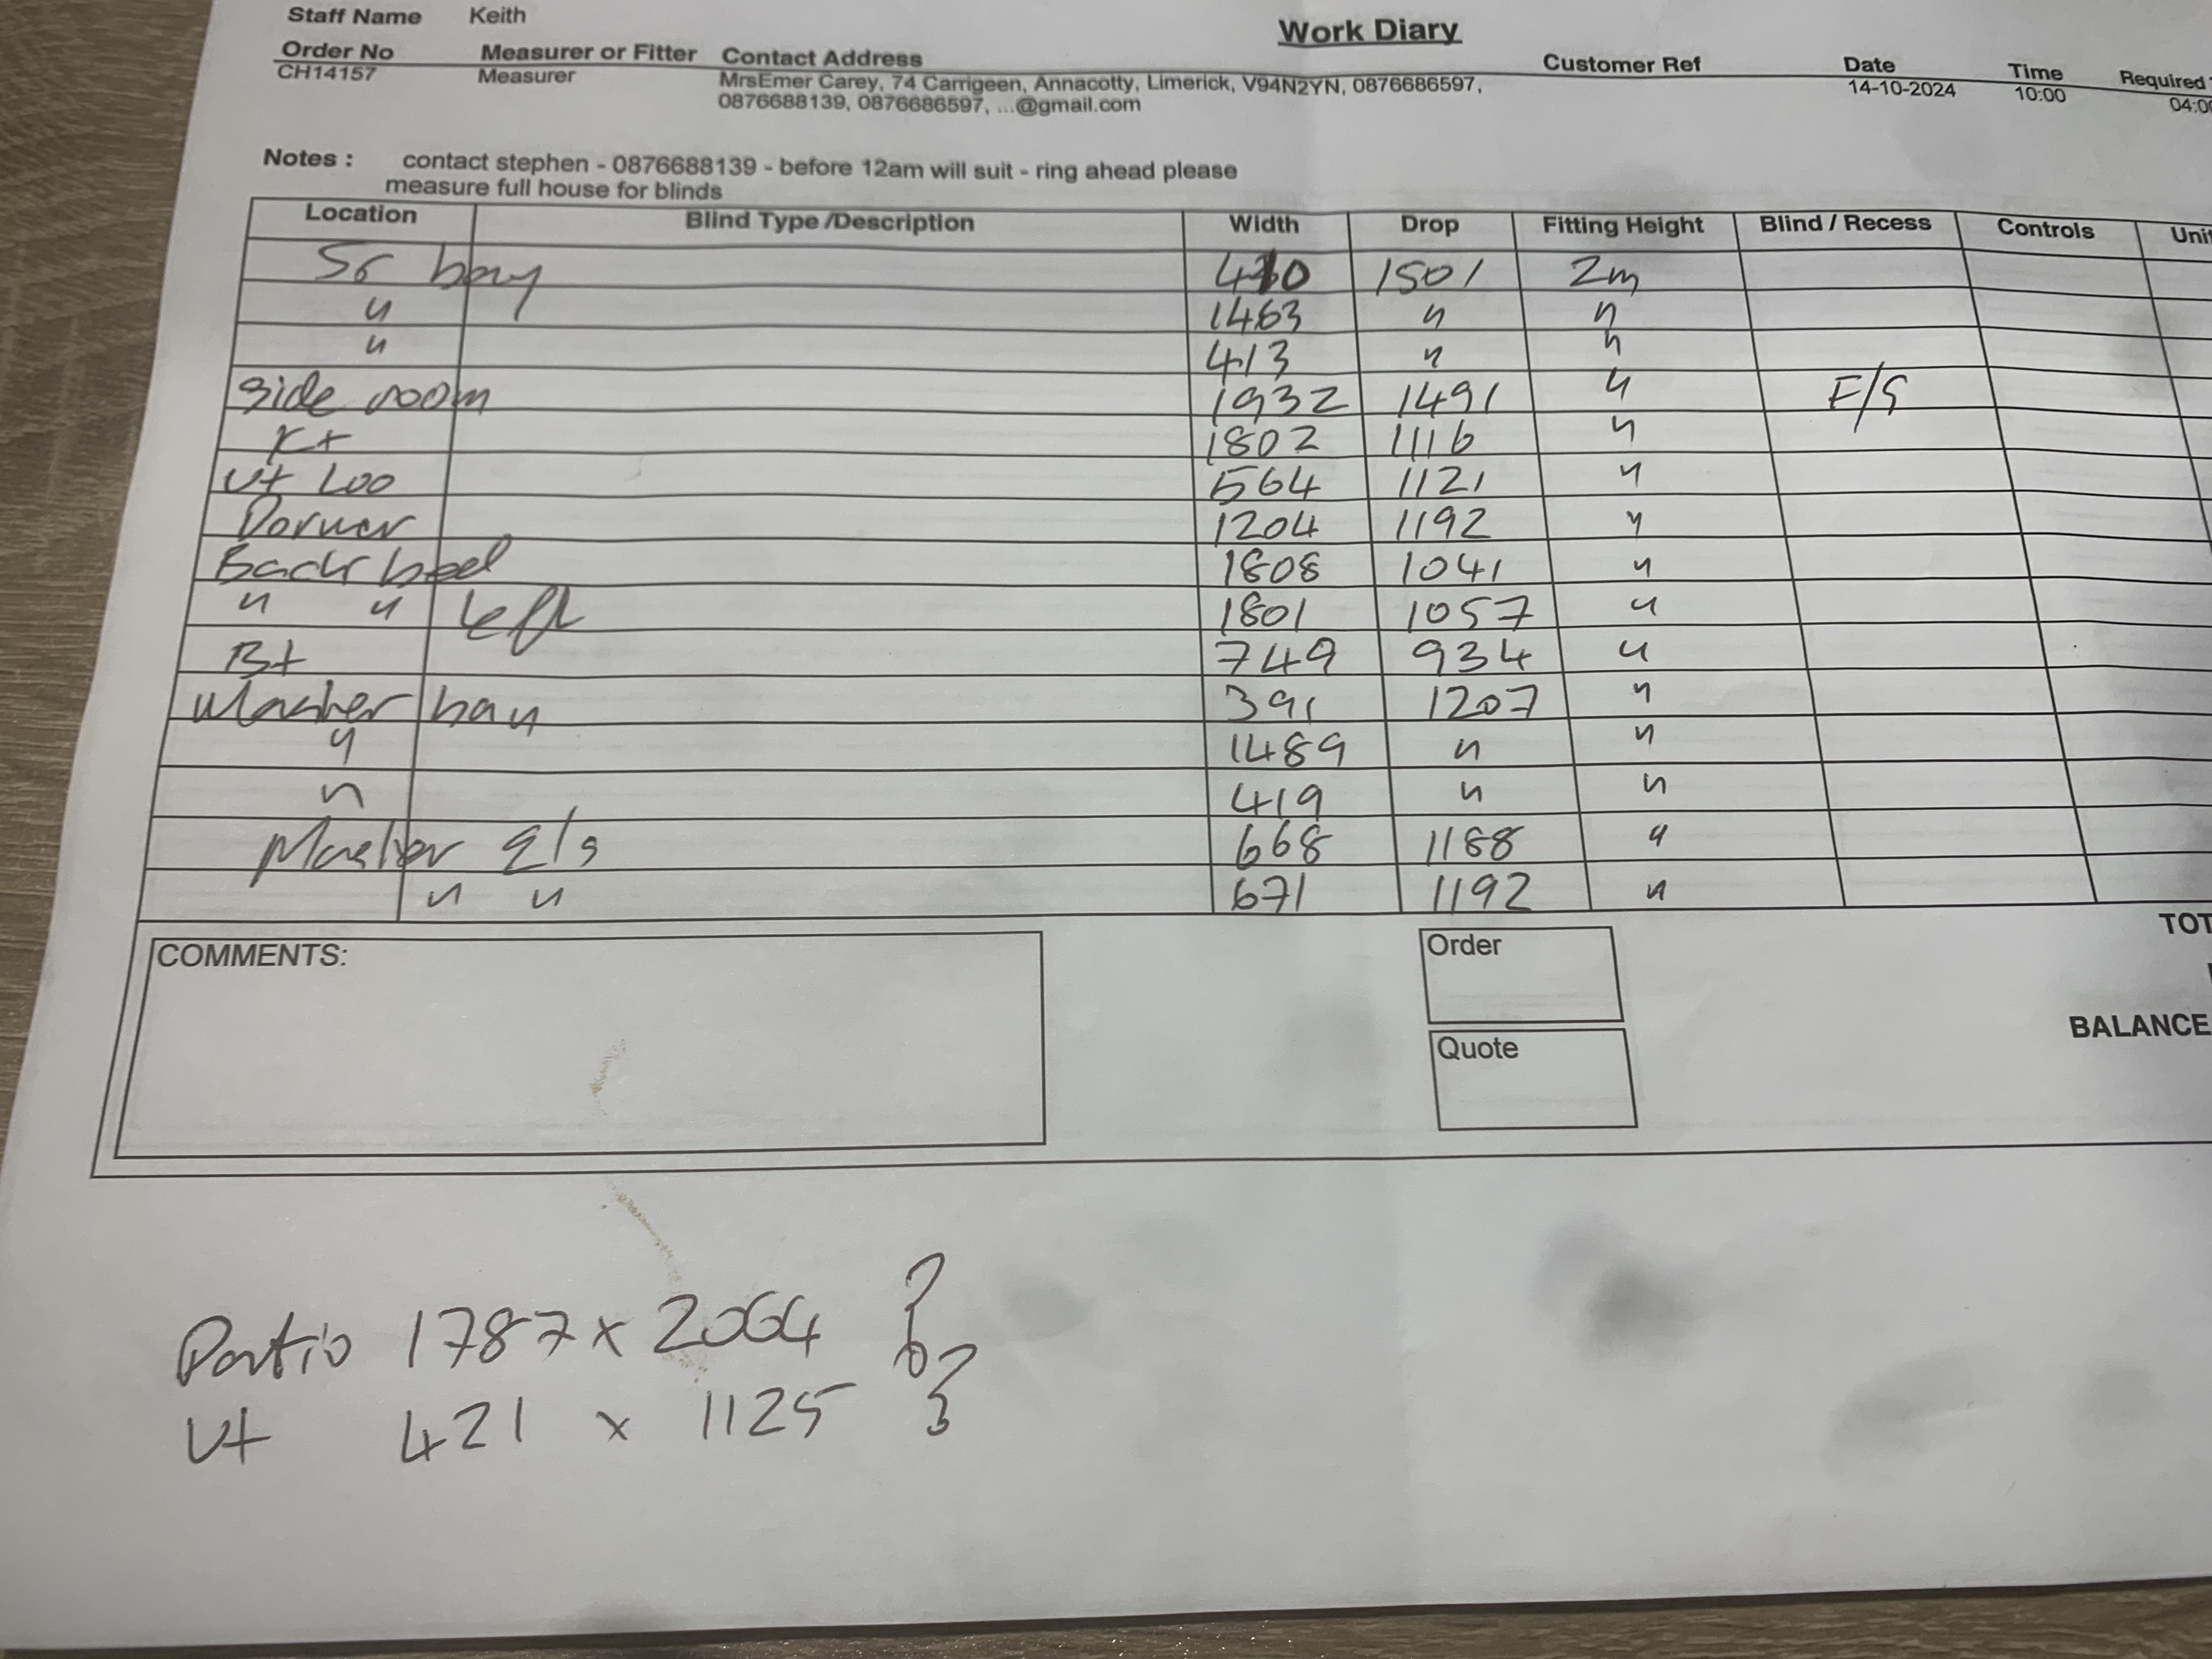 Work Diary
Staff Name Keith
Order No Measurer or Fitter Contact Address Customer Ref Date Time Required
CH14157 Measurer MrsEmer Carey, 74 Carrigeen, Annacotty, Limerick, V94N2YN, 0876686597, 14-10-2024 10:00
0876688139, 0876686597, ...@gmail.com
Notes : contact stephen - 0876688139 - before 12am will suit - ring ahead please
measure full house for blinds
Location Blind Type /Description Width Drop Fitting Height Blind / Recess Controls
bay 410 1501 2m
" 1463 " "
" 413 " "
Side room 1932 1491 " E/S
Kt 1802 1116 "
Ut Loo 564 1121 "
Dormer 1204 1192 "
Back bed 1808 1041 "
" " Left 1801 1057 "
Bt 749 934 "
Master bay 391 1207 "
" 1489 " "
" 419 " "
Master E/S 668 1188 "
" " 671 1192 "
COMMENTS:
Order
Quote
BALANCE
Patio 1787 x 2064 ?
Ut 421 x 1125 ?